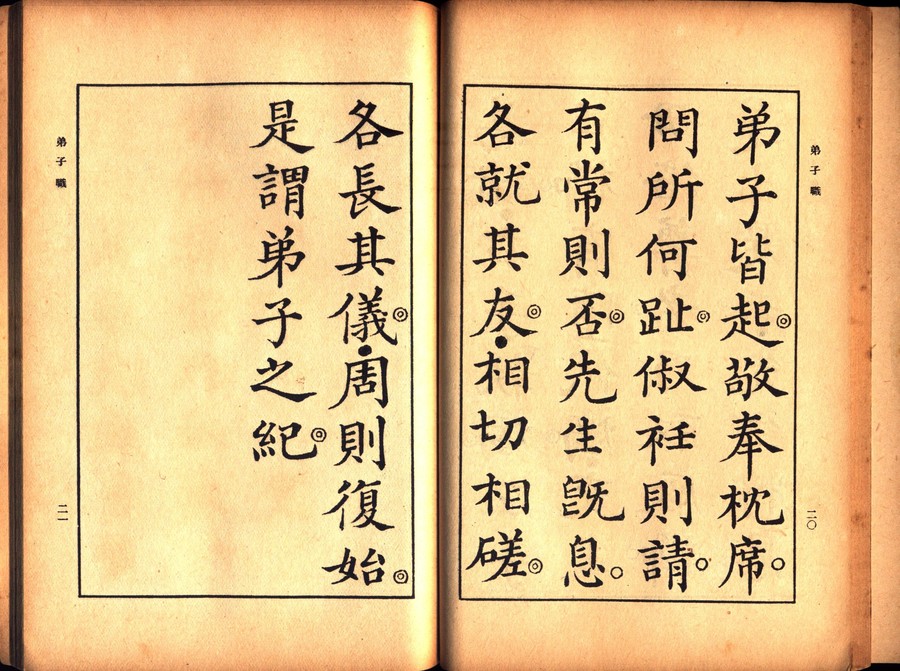 弟子職
二〇
弟子皆起◎敬奉枕席○
問所何趾◎俶衽則請○
有常則否◎先生旣息○
各就其友◎●相切相磋◎
各長其儀◎●周則復始◎
是謂弟子之紀◎
弟子職
二一